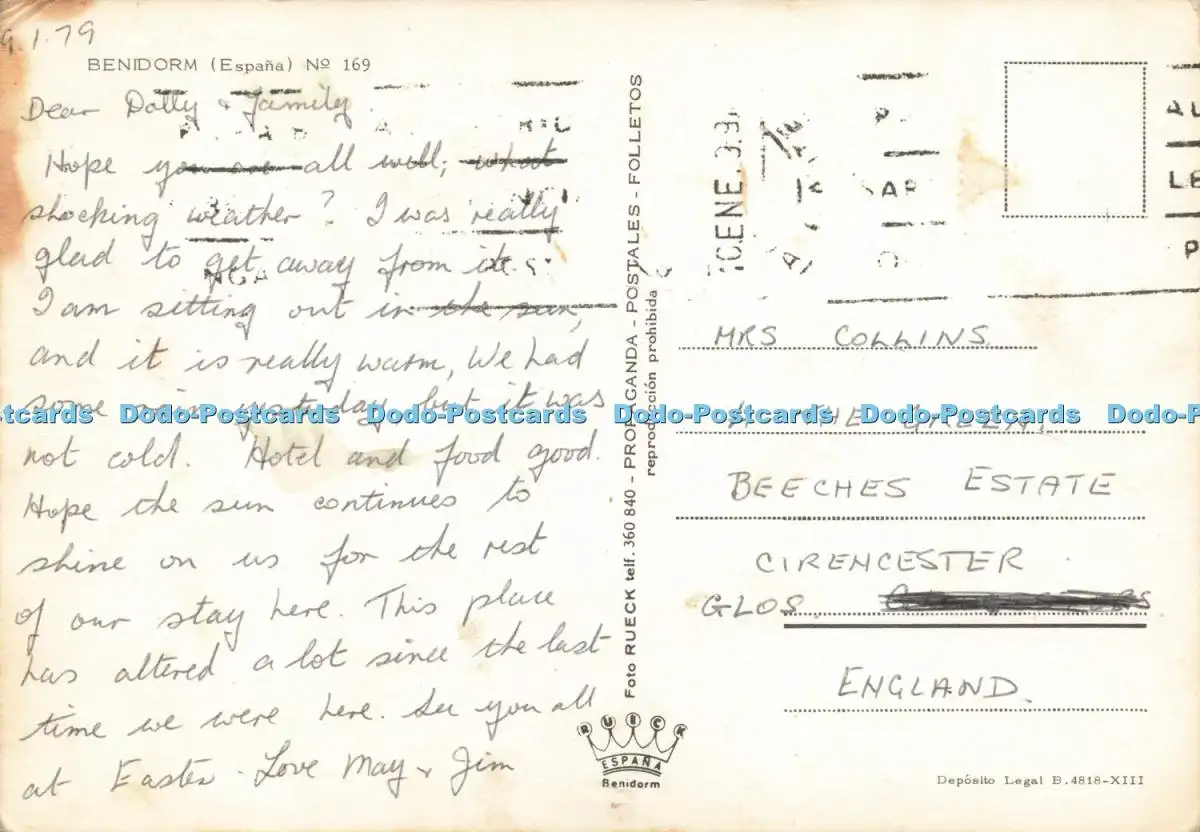 9.1.79
BENIDORM (España) Nº 169
Dear Dolly & Family
Hope you are all well, what
shocking weather? I was really
glad to get away from it.
I am sitting out in the sun,
and it is really warm, We had
some rain yesterday but it was
not cold. Hotel and food good.
Hope the sun continues to
shine on us for the rest
of our stay here. This place
has altered a lot since the last
time we were here. See you all
at Easter. Love May & Jim
Foto RUECK telf. 360 840 - PROPAGANDA - POSTALES - FOLLETOS
reproducción prohibida
RUECK
ESPAÑA
Benidorm
ENE.
MRS COLLINS
THE GREEN.
BEECHES ESTATE
CIRENCESTER
GLOS
ENGLAND
Depósito Legal B.4818-XIII
Dodo-Postcards Dodo-Postcards Dodo-Postcards Dodo-Postcards